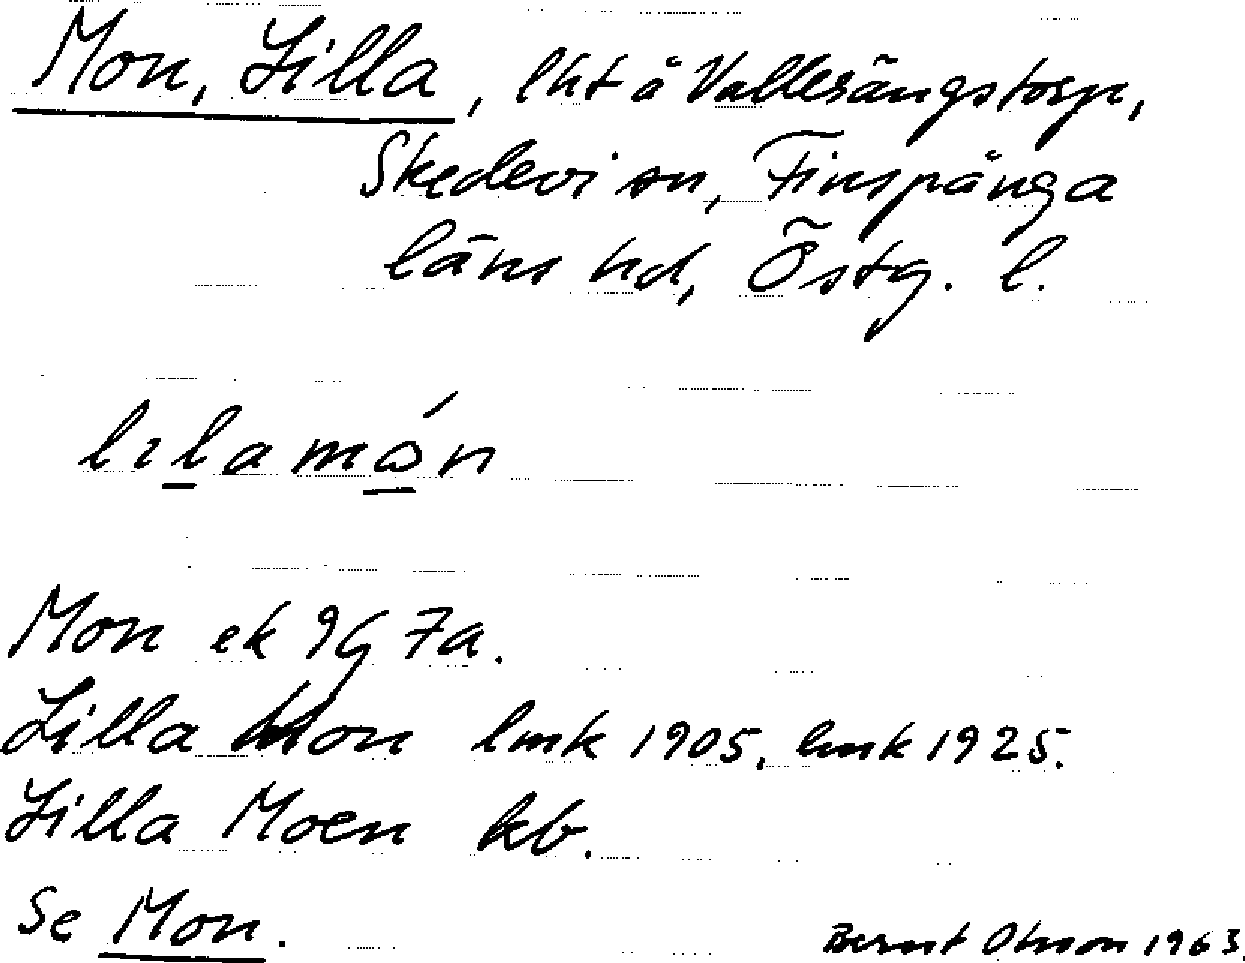 Mon, Lilla, lht å Vallersängstorp,
Skedevi sn, Finspånga
läns hd, Östg. l.
lılamón
Mon ek 9G 7a.
Lilla Mon lmk 1905, hmk 1925.
Lilla Moen kb.
Se Mon.
Bernt Olsson 1963.